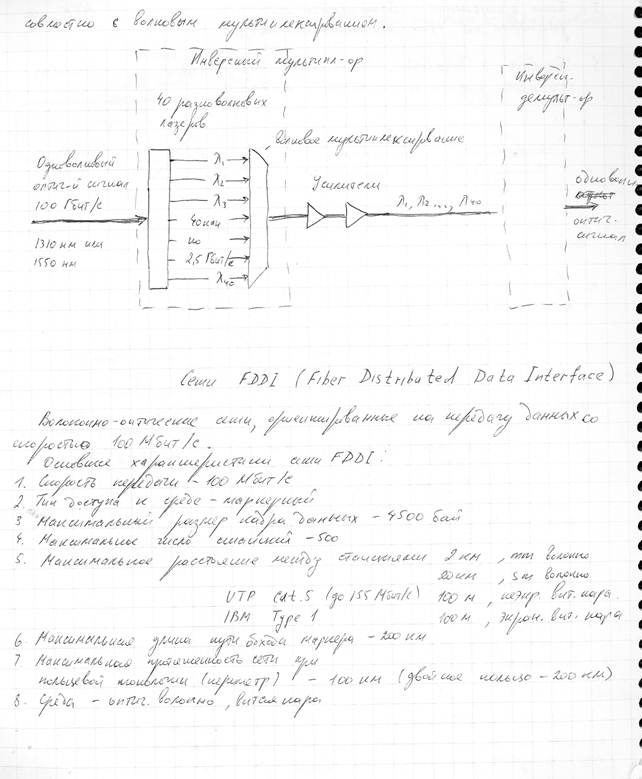 совместно с волновым мультиплексированием.
Инверсный мультипл-ор
Инверсн.
демульт-ор
40 разноволновых
лазеров
Волновое мультиплексирование
Одноволновый
оптич-й сигнал
100 Гбит/с
1310 нм или
1550 нм
λ1
λ2
λ3
40 кан
по
2,5 Гбит/с
λ40
Усилители
λ1, λ2 ..., λ40
одноволн
оптич.
сигнал
Сети FDDI (Fiber Distributed Data Interface)
Волоконно-оптические сети, ориентированные на передачу данных со
скоростью 100 Мбит/с.
Основные характеристики сети FDDI:
1. Скорость передачи - 100 Мбит/с
2. Тип доступа к среде - маркерный
3 Максимальный размер кадра данных - 4500 байт
4. Максимальное число станций - 500
5. Максимальное расстояние между станциями 2 км, mm волокно
20 км, sm волокно
UTP cat.5 (до 155 Мбит/с) 100 м, неэкр. вит. пара.
IBM Type 1 100 м, экран. вит. пара
6 Максимальная длина пути обхода маркера - 200 км
7 Максимальная протяженность сети при
кольцевой топологии (периметр) - 100 км (двойное кольцо - 200 км)
8. Среда - оптич. волокно, витая пара